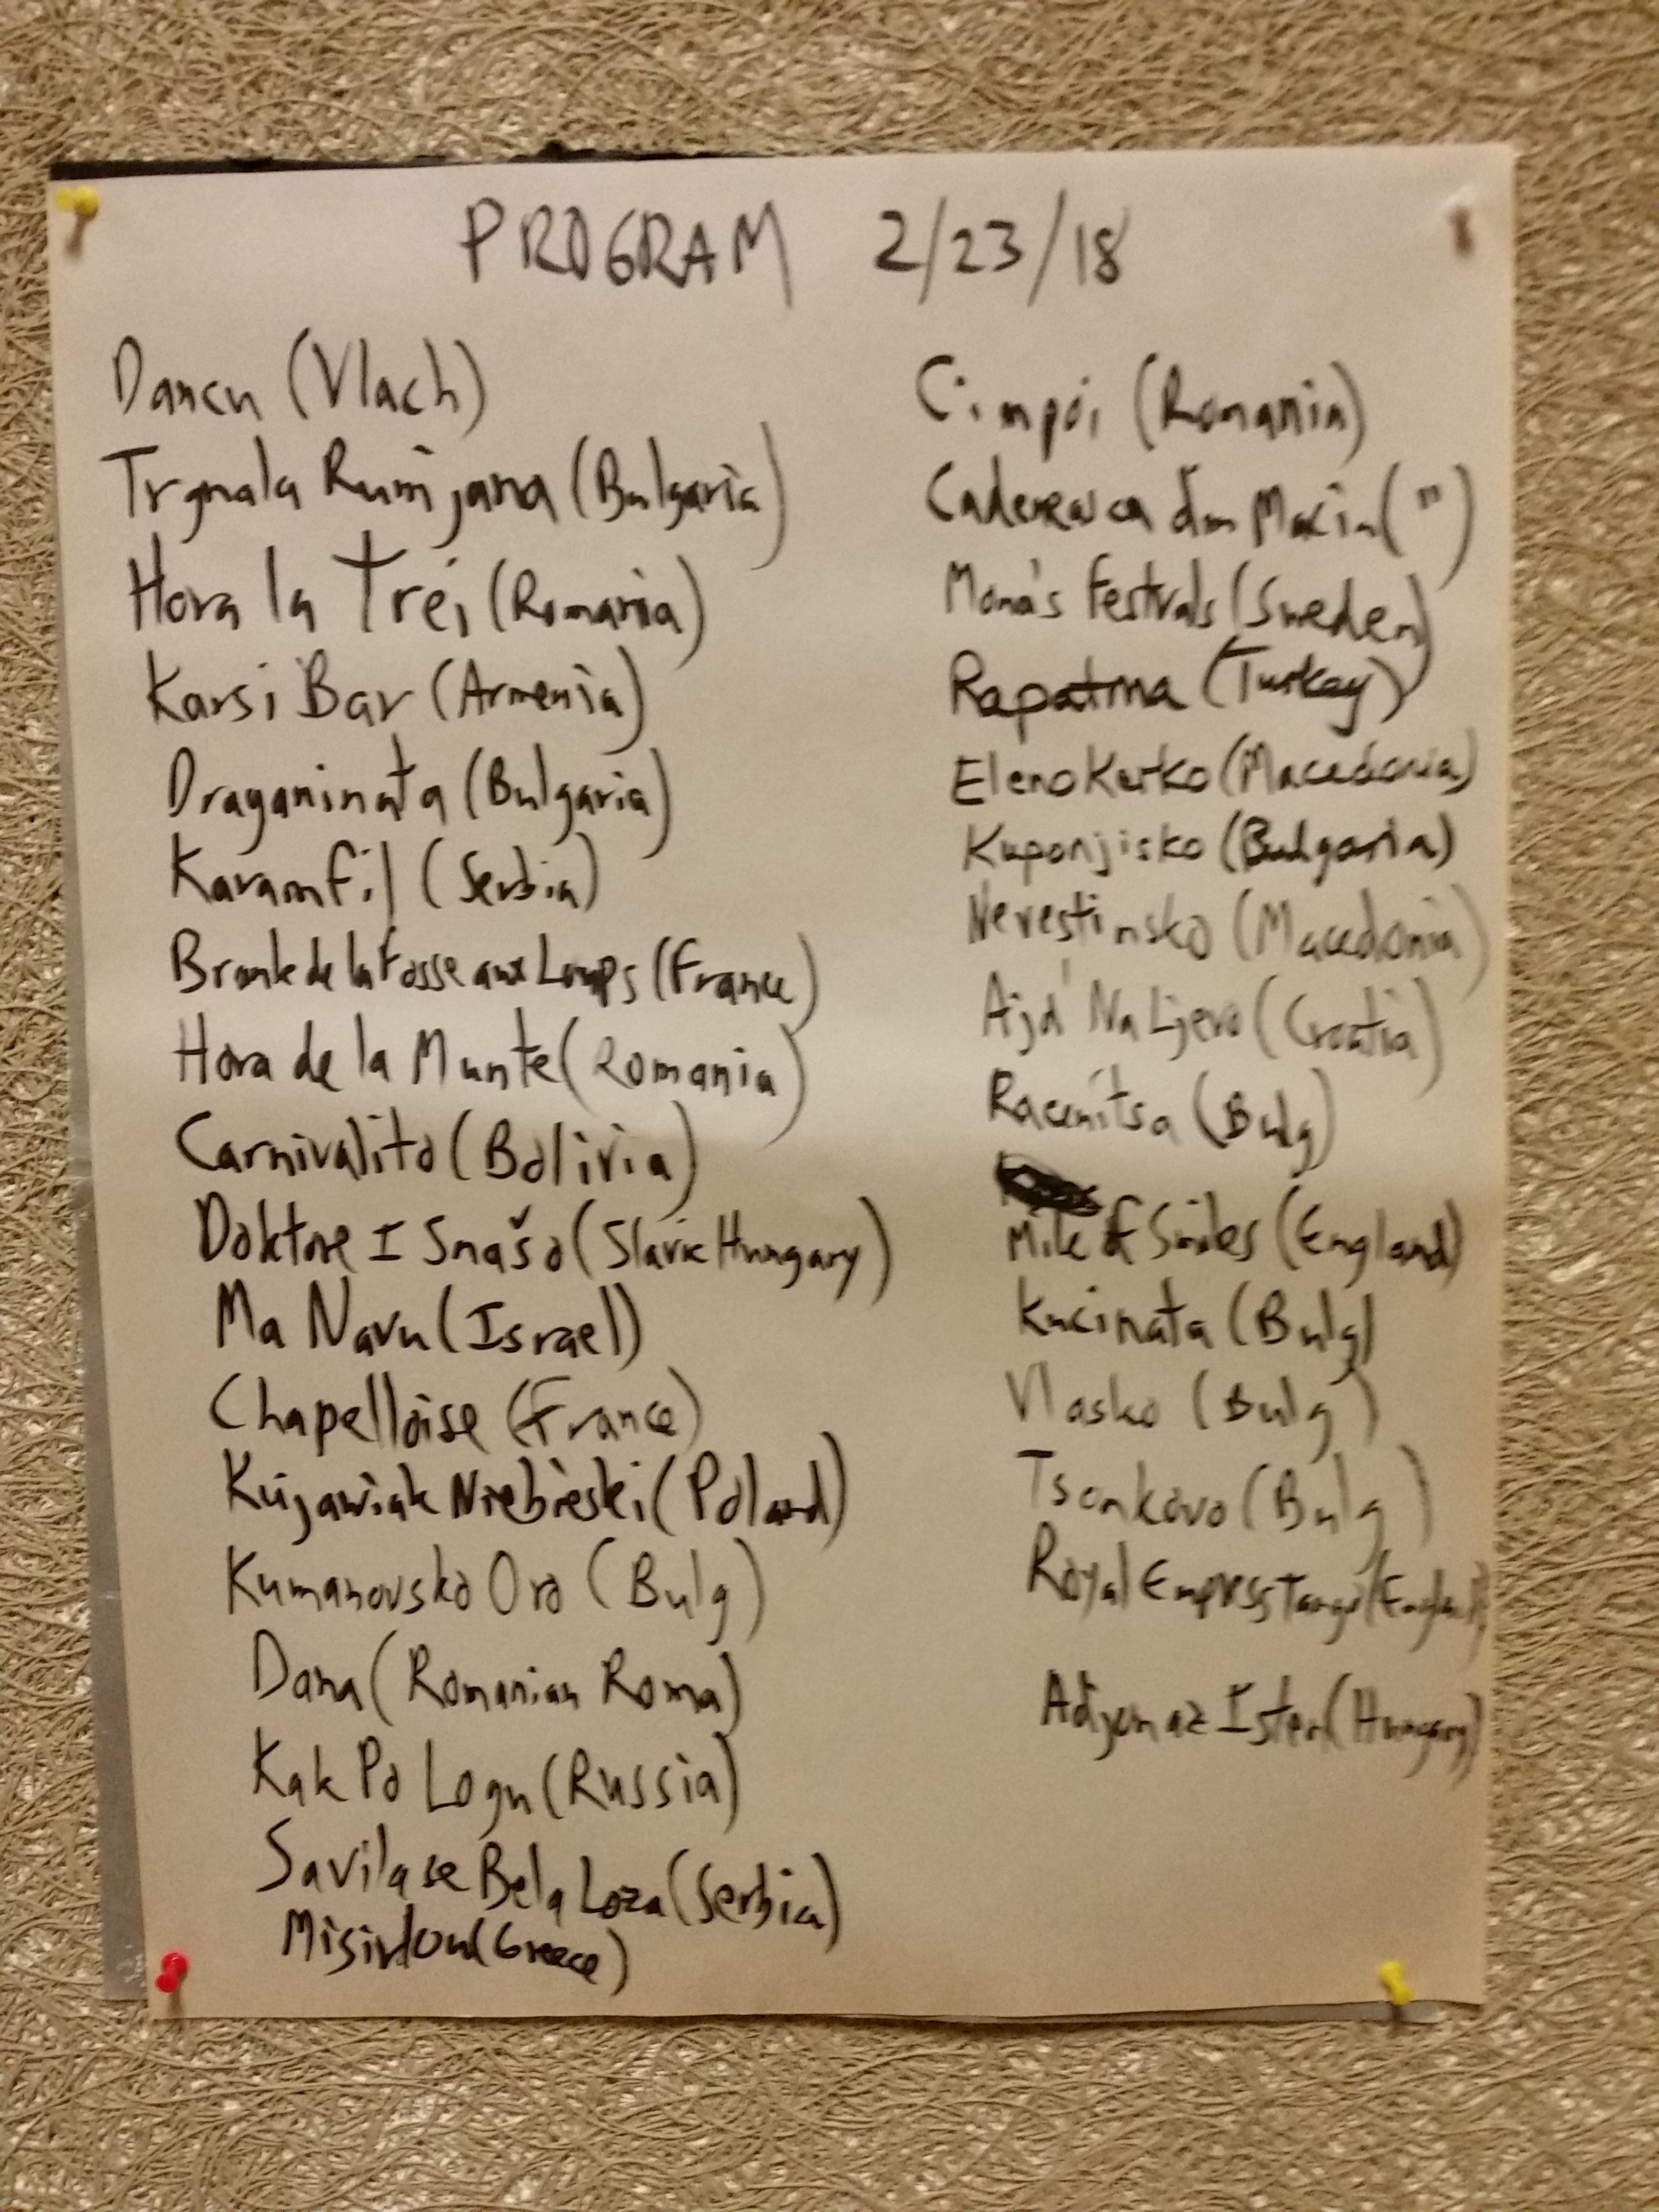 PROGRAM 2/23/18
Dancu (Vlach)
Trgnala Rumijana (Bulgaria)
Hora la Trei (Romania)
Karsi Bar (Armenia)
Draganinata (Bulgaria)
Karamfil (Serbia)
Branle de la Fosse aux Loups (France)
Hora de la Munte (Romania)
Carnivalito (Bolivia)
Doktore I Snašo (Slavic Hungary)
Ma Navu (Israel)
Chapelloise (France)
Kujawiak Niebieski (Poland)
Kumanovsko Oro (Bulg)
Dana (Romanian Roma)
Kak Po Logu (Russia)
Savila se Bela Loza (Serbia)
Misirlou (Greece)
Cimpoi (Romania)
din Macin (")
Mona's Festvals (Sweden)
Rapatma (Turkey)
Eleno Kerko (Macedonia)
Kuponjisko (Bulgaria)
Nevestinsko (Macedonia)
Ajd' Na Ljevo (Croatia)
Racenitsa (Bulg)
Mile of Smiles (England)
Kucinata (Bulg)
Vlasko (Bulg)
Tsonkovo (Bulg)
Royal Empress Tango (England)
Adjon az Isten (Hungary)